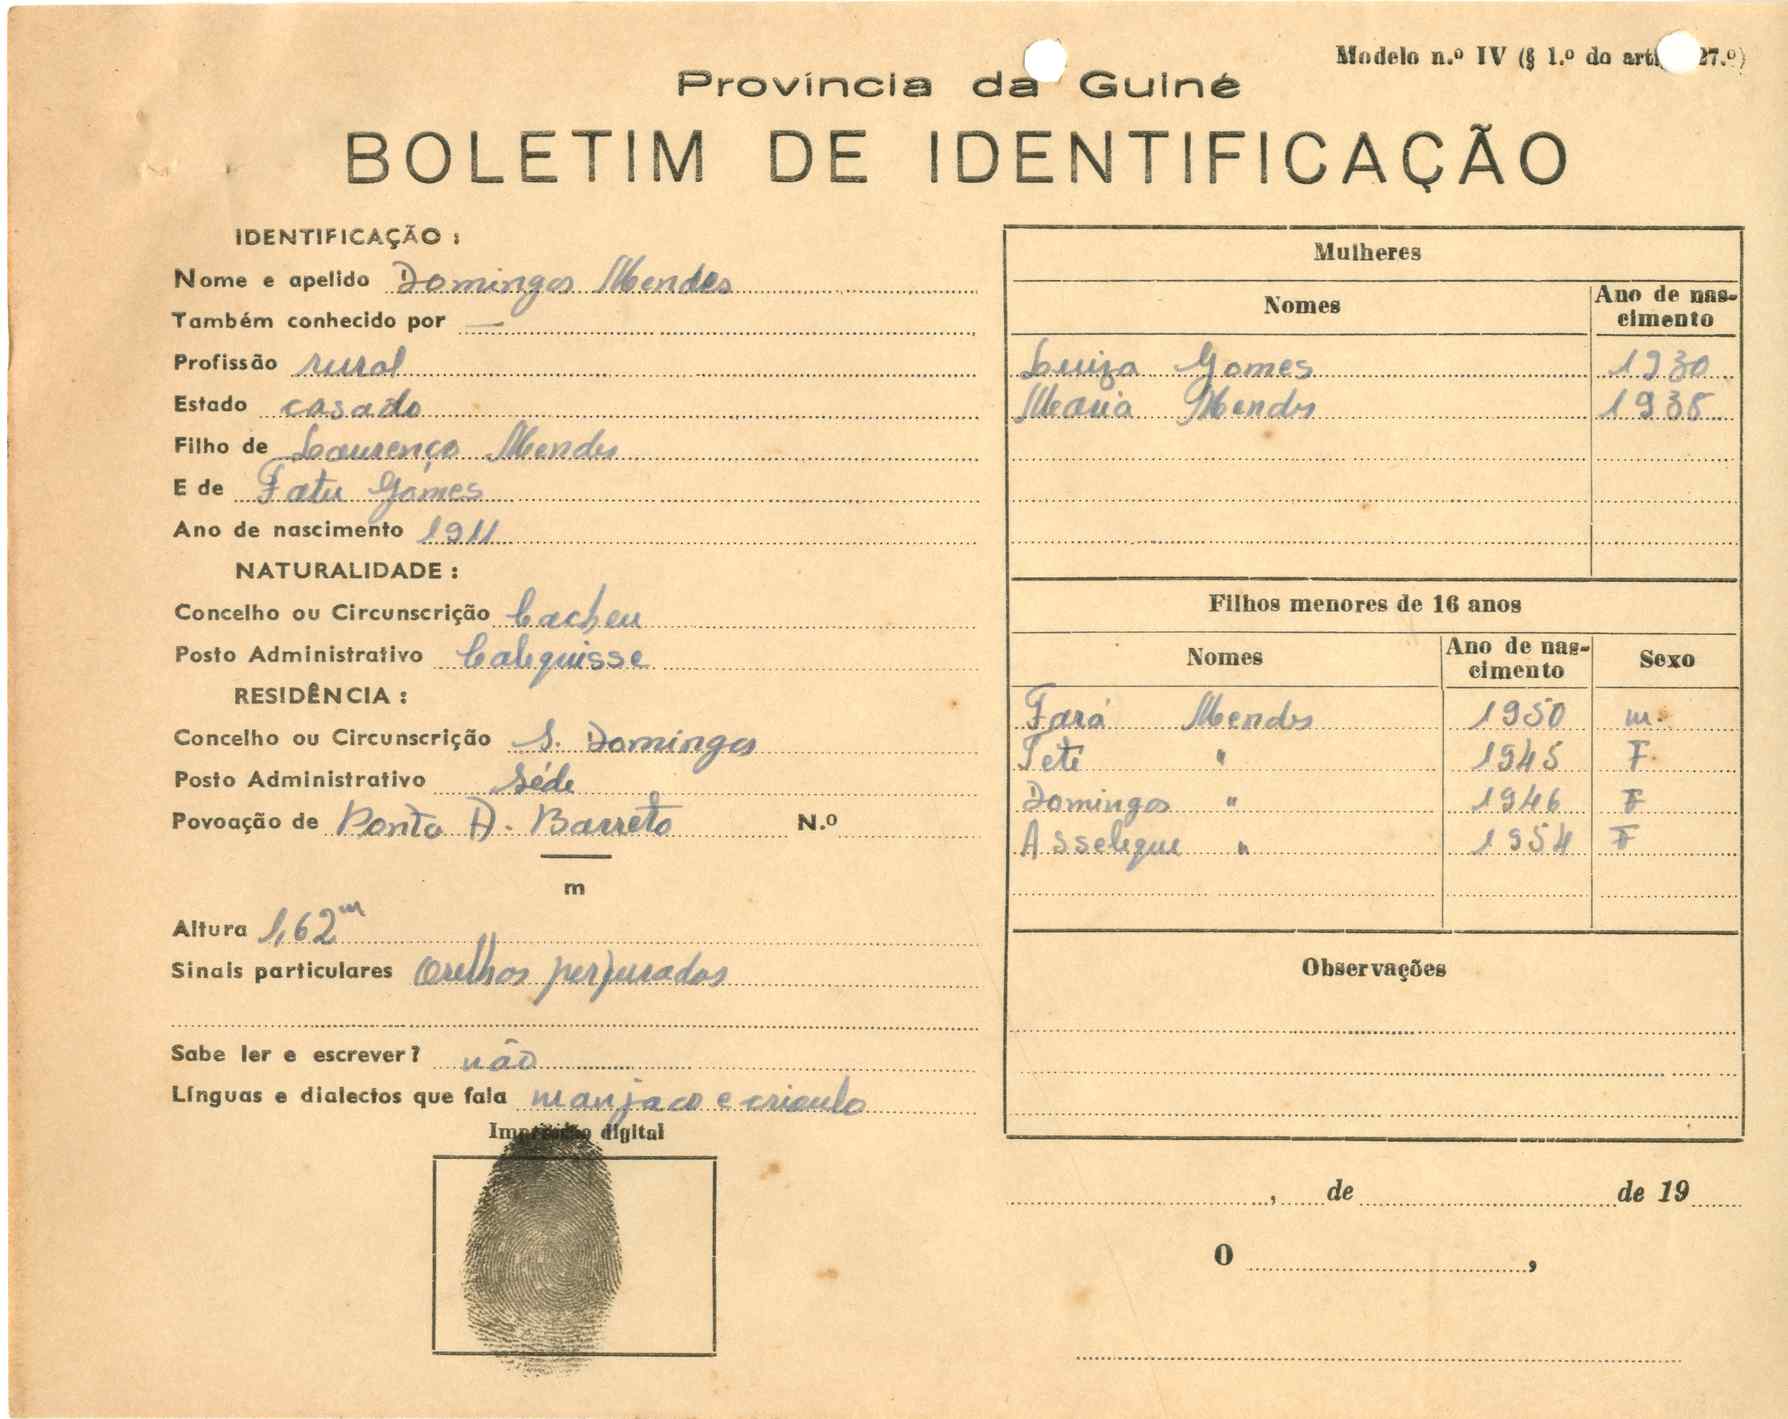 Modelo n.º IV (§ 1.º do arti 27.º)
Província da Guiné
BOLETIM DE IDENTIFICAÇÃO
IDENTIFICAÇÃO :
Nome e apelido Domingos Mendes
Também conhecido por —
Profissão rural
Estado casado
Filho de Lourenço Mendes
E de Fatu Gomes
Ano de nascimento 1911
NATURALIDADE :
Concelho ou Circunscrição Cacheu
Posto Administrativo Calequisse
RESIDÊNCIA :
Concelho ou Circunscrição S. Domingos
Posto Administrativo Séde
Povoação de Ponta A. Barreto N.º
m
Altura 1,62m
Sinais particulares Orelhas perfuradas
Sabe ler e escrever? não
Línguas e dialectos que fala manjaco e crioulo
Impressão digital
Mulheres
Nomes Ano de nas-
cimento
Luiza Gomes 1930
Maria Mendes 1935
Filhos menores de 16 anos
Nomes Ano de nas-
cimento Sexo
Fará Mendes 1950 m.
Teté " 1945 F.
Domingas " 1946 F
Asselique " 1954 F
Observações
, de de 19
O ,